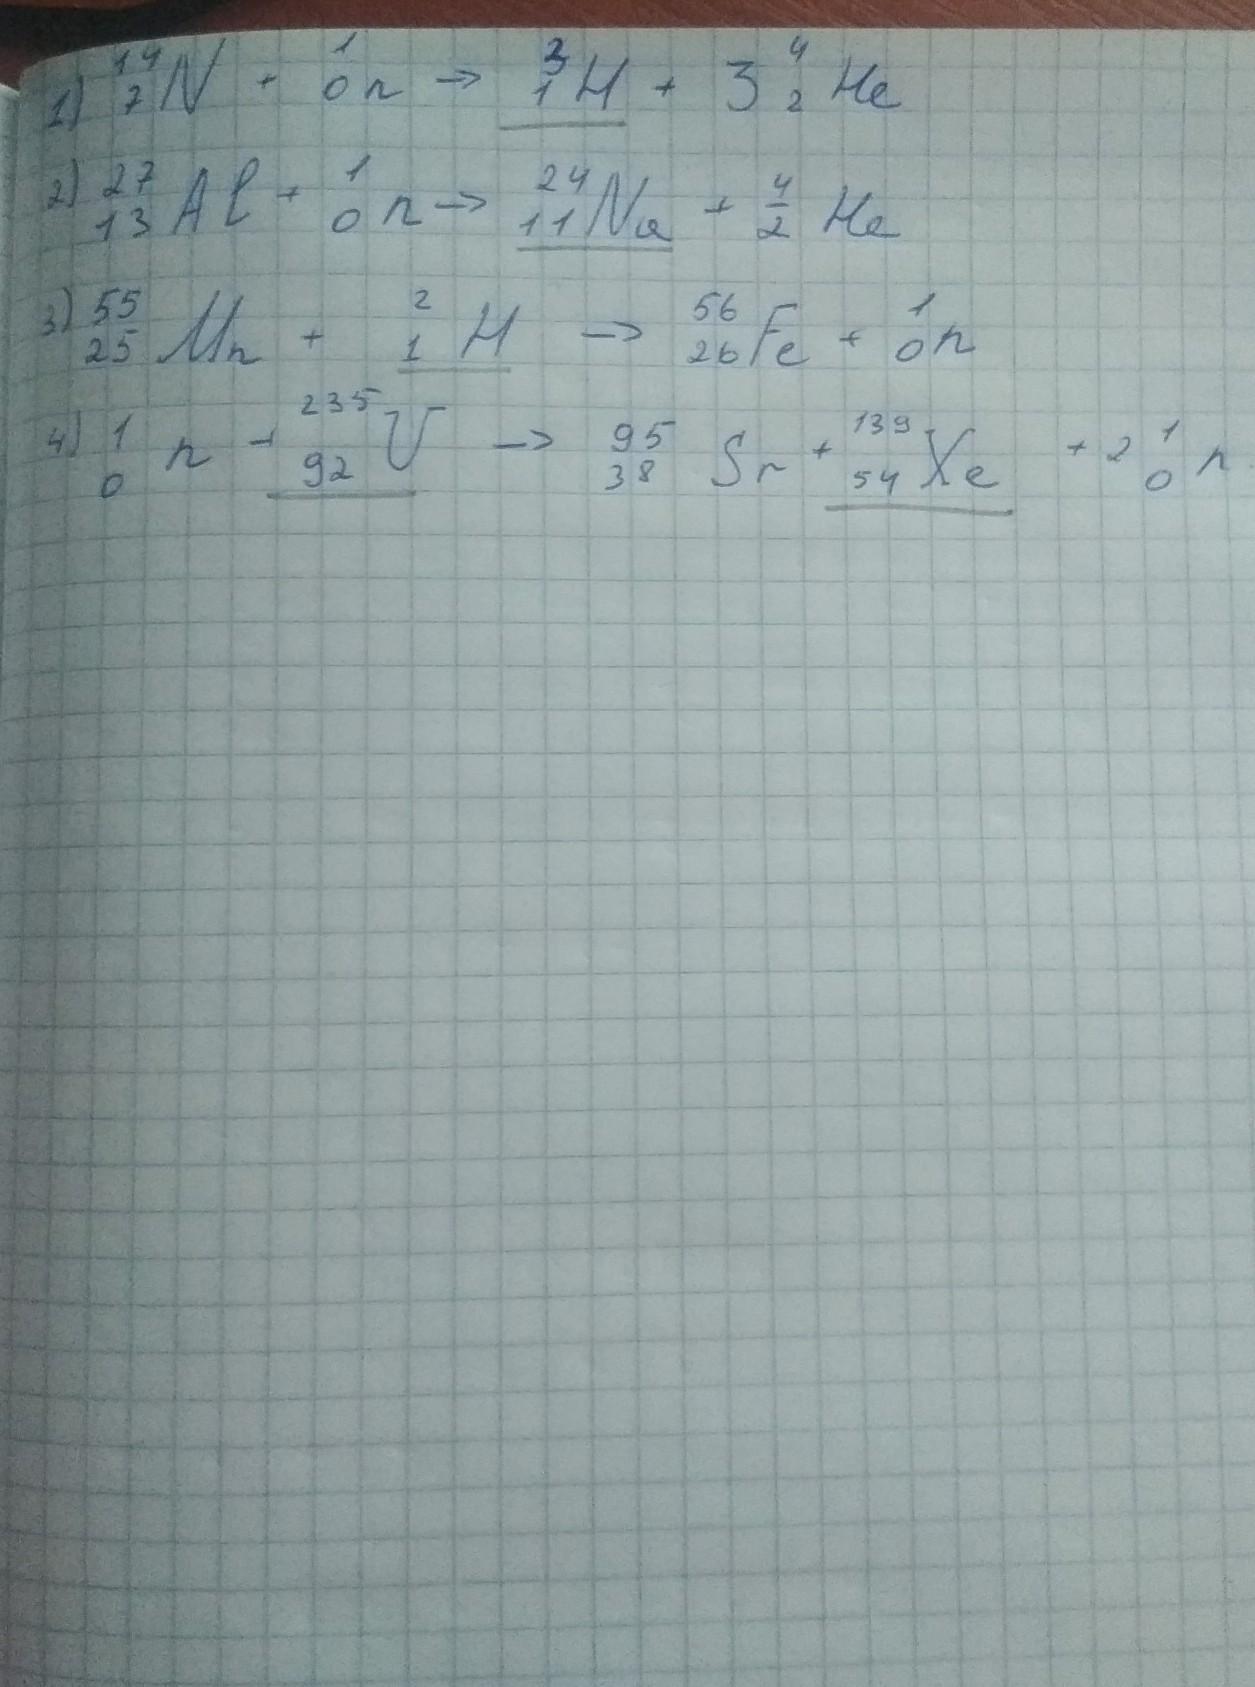 1) ¹⁴₇N + ¹₀n → ³₁H + 3 ⁴₂He
2) ²⁷₁₃Al + ¹₀n → ²⁴₁₁Na + ⁴₂He
3) ⁵⁵₂₅Mn + ²₁H → ⁵⁶₂₆Fe + ¹₀n
4) ¹₀n + ²³⁵₉₂U → ⁹⁵₃₈Sr + ¹³⁹₅₄Xe + 2 ¹₀n